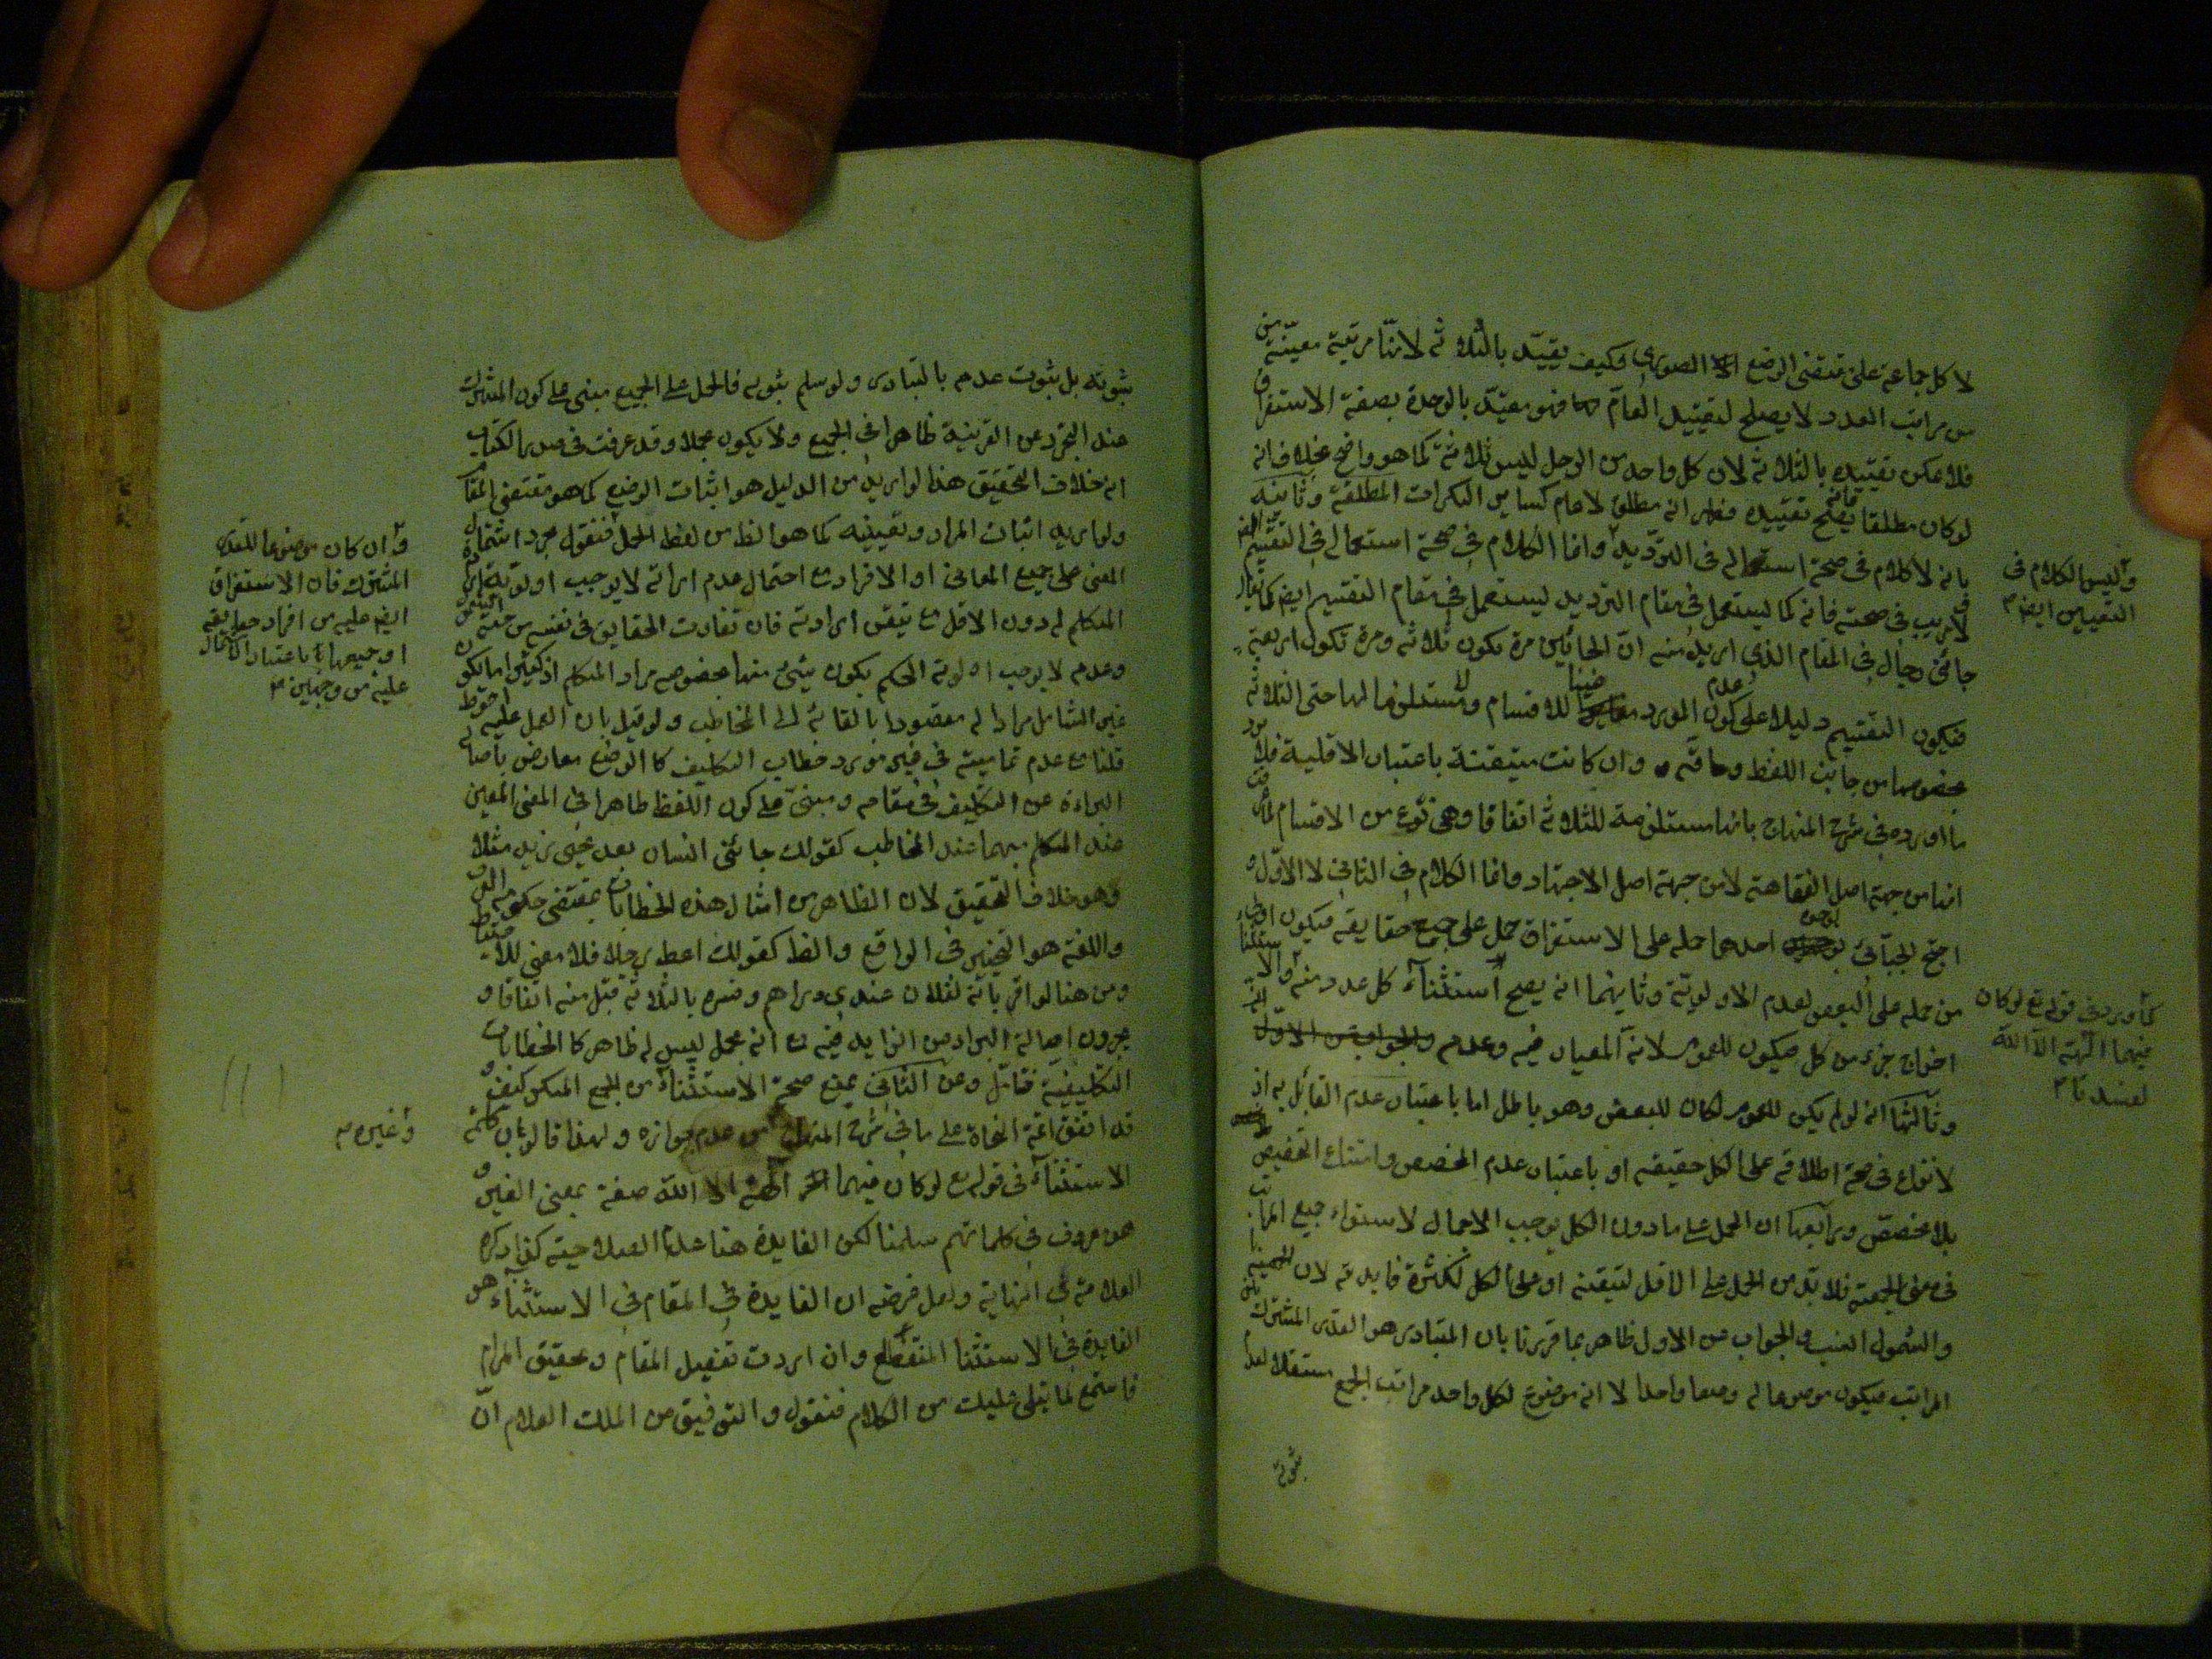 لا كل جماعة على مقتضى الوضع الصوري وكيف يقيد بالثلاثة لانها مرتبة معينة
من مراتب العدد لا يصلح لتقييد العام فهو مقيد بالوحدة بصفة الاستغراق
فلا يمكن تقييده بالثلاثة لان كل واحد من الرجل ليس ثلاثة كما هو واضح بخلاف انه
لو كان مطلقا يصلح تقييده انه مطلق لا عام كساير النكرات المطلقة وثانيه
بانه لا كلام في صحة استعماله في الترديد وانما الكلام في صحة استعماله في التقسيم
لا ريب في صحته فانه كما يستعمل في مقام الترديد يستعمل في مقام التقسيم ايضا كما يقال
جائني رجال في المقام الذي اريد منه ان الجائين مرة تكون ثلاثة ومرة تكون اربعة
فيكون التقسيم دليلا على عدم كون المورد للاقسام ولا مستلزما لها حتى الثلاثة
بخصوصها من جانب اللفظ وان كانت متيقنة باعتبار الاقلية فلا يرد
ما اورده في شرح المنهاج بانها مستلزمة للثلاثة اتفاقا وهي نوع من الاقسام
انما من جهة اصل الفقاهة لا من جهة اصل الاجتهاد وانما الكلام في الثاني لا الاول و
احتج الجبائي بوجوه احدها حمله على الاستغراق حمل على جميع حقايقه فيكون اولى
من حمله على البعض لعدم الاولوية وثانيهما انه يصح استثناء كل عدد منه والاستثناء
اخراج جزء من كل فيكون للعموم لانه المعيار فيه وعدم
وثالثها انه لو لم يكن للعموم لكان للبعض وهو باطل اما باعتبار عدم القائل به اذ
لا نزاع في صحة اطلاقه على الكل حقيقة او باعتبار عدم المخصص وامتناع التخصيص
بلا مخصص ورابعها ان الحمل على ما دون الكل يوجب الاجمال لاستواء جميع المراتب
في معنى الجمعية فلا بد من الحمل على الاقل لتيقنه او على الكل لكثرة فايدته لان الجمعية
والشمول انسب والجواب عن الاول ظاهر بما قررنا بان المتبادر هو القدر المشترك بين
المراتب فيكون موضوعا له وضعا واحدا لا انه موضوع لكل واحد مراتب الجمع مستقلا لعدم
ثبوته
وليس الكلام في
التعيين ايضا
كما ورد في قوله تع لو كان
فيهما آلهة الا الله
لفسدتا
ثبوته بل ثبوت عدمه بالتبادر ولو سلم ثبوته فالحمل على الجميع مبني على كون المشترك
عند التجرد عن القرينة ظاهرا في الجميع ولا يكون مجملا وقد عرفت في صدر الكتاب
انه خلاف التحقيق هذا لو اريد من الدليل هو اثبات الوضع كما هو مقتضى المقام
ولو اريد اثبات المراد وتعيينه كما هو الظ من لفظ الحمل فنقول مجرد اشتمال
المعنى على جميع المعاني او الافراد مع احتمال عدم ارادته لا يوجب اولوية ارادة
المتكلم له دون الاقل مع تيقن ارادته فان تفاوت الحقايق في نفسه من حيث الشمول
وعدمه لا يوجب اولوية الحكم بكون شيئ منها بخصوصه مراد المتكلم اذ كثيرا ما يكون
غير الشامل مرادا له مقصودا بالقائه الى المخاطب ولو قيل بان الحمل عليه احوط
قلنا مع عدم تماميته في غير مورد خطاب التكليف كالوضع معارض باصالة
البراءة عن التكليف في مقامه ومبني على كون اللفظ ظاهرا في المعنى المعين
عند المتكلم مبهما عند المخاطب كقولك جائني انسان بعد مجيئ زيد مثلا
وهو خلاف التحقيق لان الظاهر من امثال هذه الخطابات بمقتضى حكومة العرف
واللغة هو التخيير في الواقع والظ كقولك اعط رجلا فلا معنى للاحتياط
ومن هنا لو اقر بانه لفلان عندي دراهم وفسره بالثلاثة قبل منه اتفاقا و
يجرون اصالة البراءة من الزايد فيه مع انه مجمل ليس له ظاهر كالخطابات
التكليفية فتامل وعن الثاني بمنع صحة الاستثناء من الجمع المنكر كيف و
قد اتفق ائمة النحاة على ما في شرح المنهاج من عدم جوازه ولهذا قالوا بان كلمة
الاستثناء في قوله تع لو كان فيهما آلهة الا الله صفة بمعنى الغير و
هو معروف في كلماتهم سلمنا لكن الفايدة هنا هذا الصلاحية كذا ذكره
العلامة في النهاية ولعل غرضه ان الفايدة في المقام في الاستثناء هو
الفايدة في الاستثنا المنقطع وان اردت تفصيل المقام وتحقيق المرام
فاستمع لما يتلى عليك من الكلام فنقول والتوفيق من الملك العلام ان
وان كان موضوعا للقدر
المشترك فان الاستغراق
ايضا عليه من افراد حقايقه
او جميعها باعتبار اكتمال
عليه من وجهين
وغيره